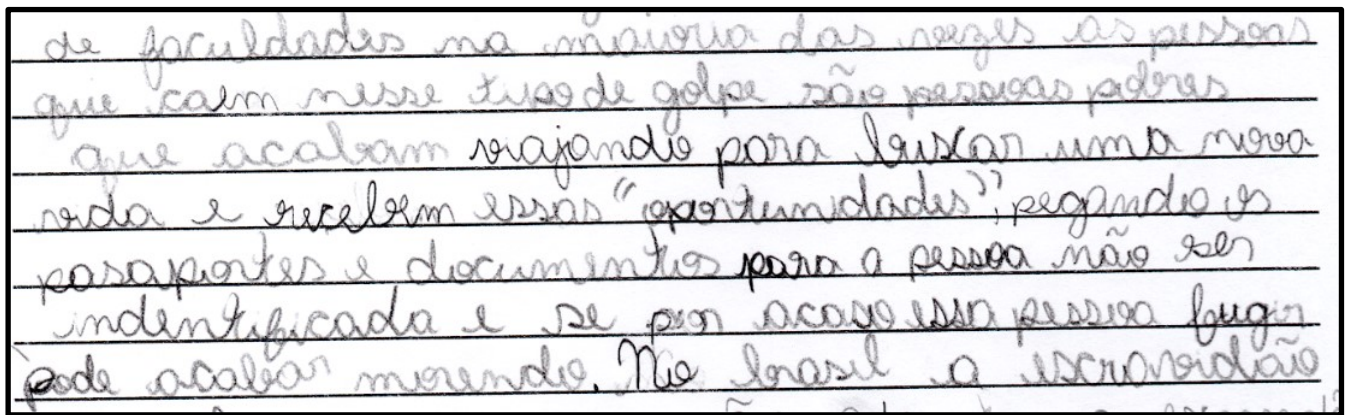 de faculdades na maioria das vezes as pessoas
que caem nesse tipo de golpe são pessoas pobres
que acabam viajando para buscar uma nova
vida e recebem essas "oportunidades", pegando os
pasaportes e documentos para a pessoa não ser
indentificada e se por acaso essa pessoa fugir
pode acabar morendo. No brasil a escravidão